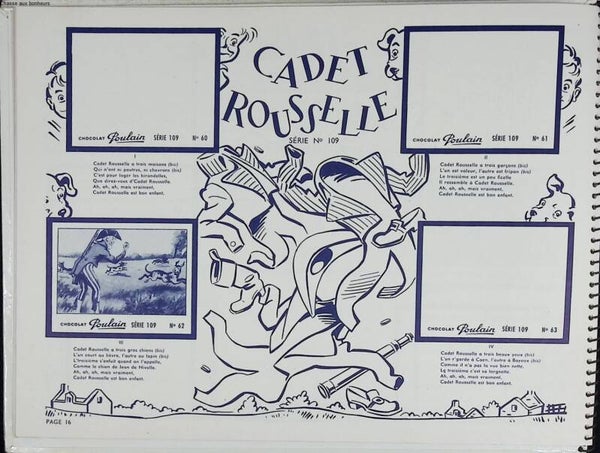 Chasse aux bonheurs
CADET
ROUSSELLE
SÉRIE No 109
CHOCOLAT Poulain SÉRIE 109 No 60
I
Cadet Rousselle a trois maisons (bis)
Qui n'ont ni poutres, ni chevrons (bis)
C'est pour loger les hirondelles,
Que direz-vous d'Cadet Rousselle.
Ah, ah, ah, mais vraiment,
Cadet Rousselle est bon enfant.
CHOCOLAT Poulain SÉRIE 109 No 61
II
Cadet Rousselle a trois garçons (bis)
L'un est voleur, l'autre est fripon (bis)
Le troisième est un peu ficelle
Il ressemble à Cadet Rousselle.
Ah, ah, ah, mais vraiment,
Cadet Rousselle est bon enfant.
CHOCOLAT Poulain SÉRIE 109 No 62
III
Cadet Rousselle a trois gros chiens (bis)
L'un court au lièvre, l'autre au lapin (bis)
L'troisième s'enfuit quand on l'appelle,
Comme le chien de Jean de Nivelle.
Ah, ah, ah, mais vraiment,
Cadet Rousselle est bon enfant.
CHOCOLAT Poulain SÉRIE 109 No 63
IV
Cadet Rousselle a trois beaux yeux (bis)
L'un r'garde à Caen, l'autre à Bayeux (bis)
Comme il n'a pas la vue bien nette,
Le troisième c'est sa lorgnette.
Ah, ah, ah, mais vraiment,
Cadet Rousselle est bon enfant.
PAGE 16